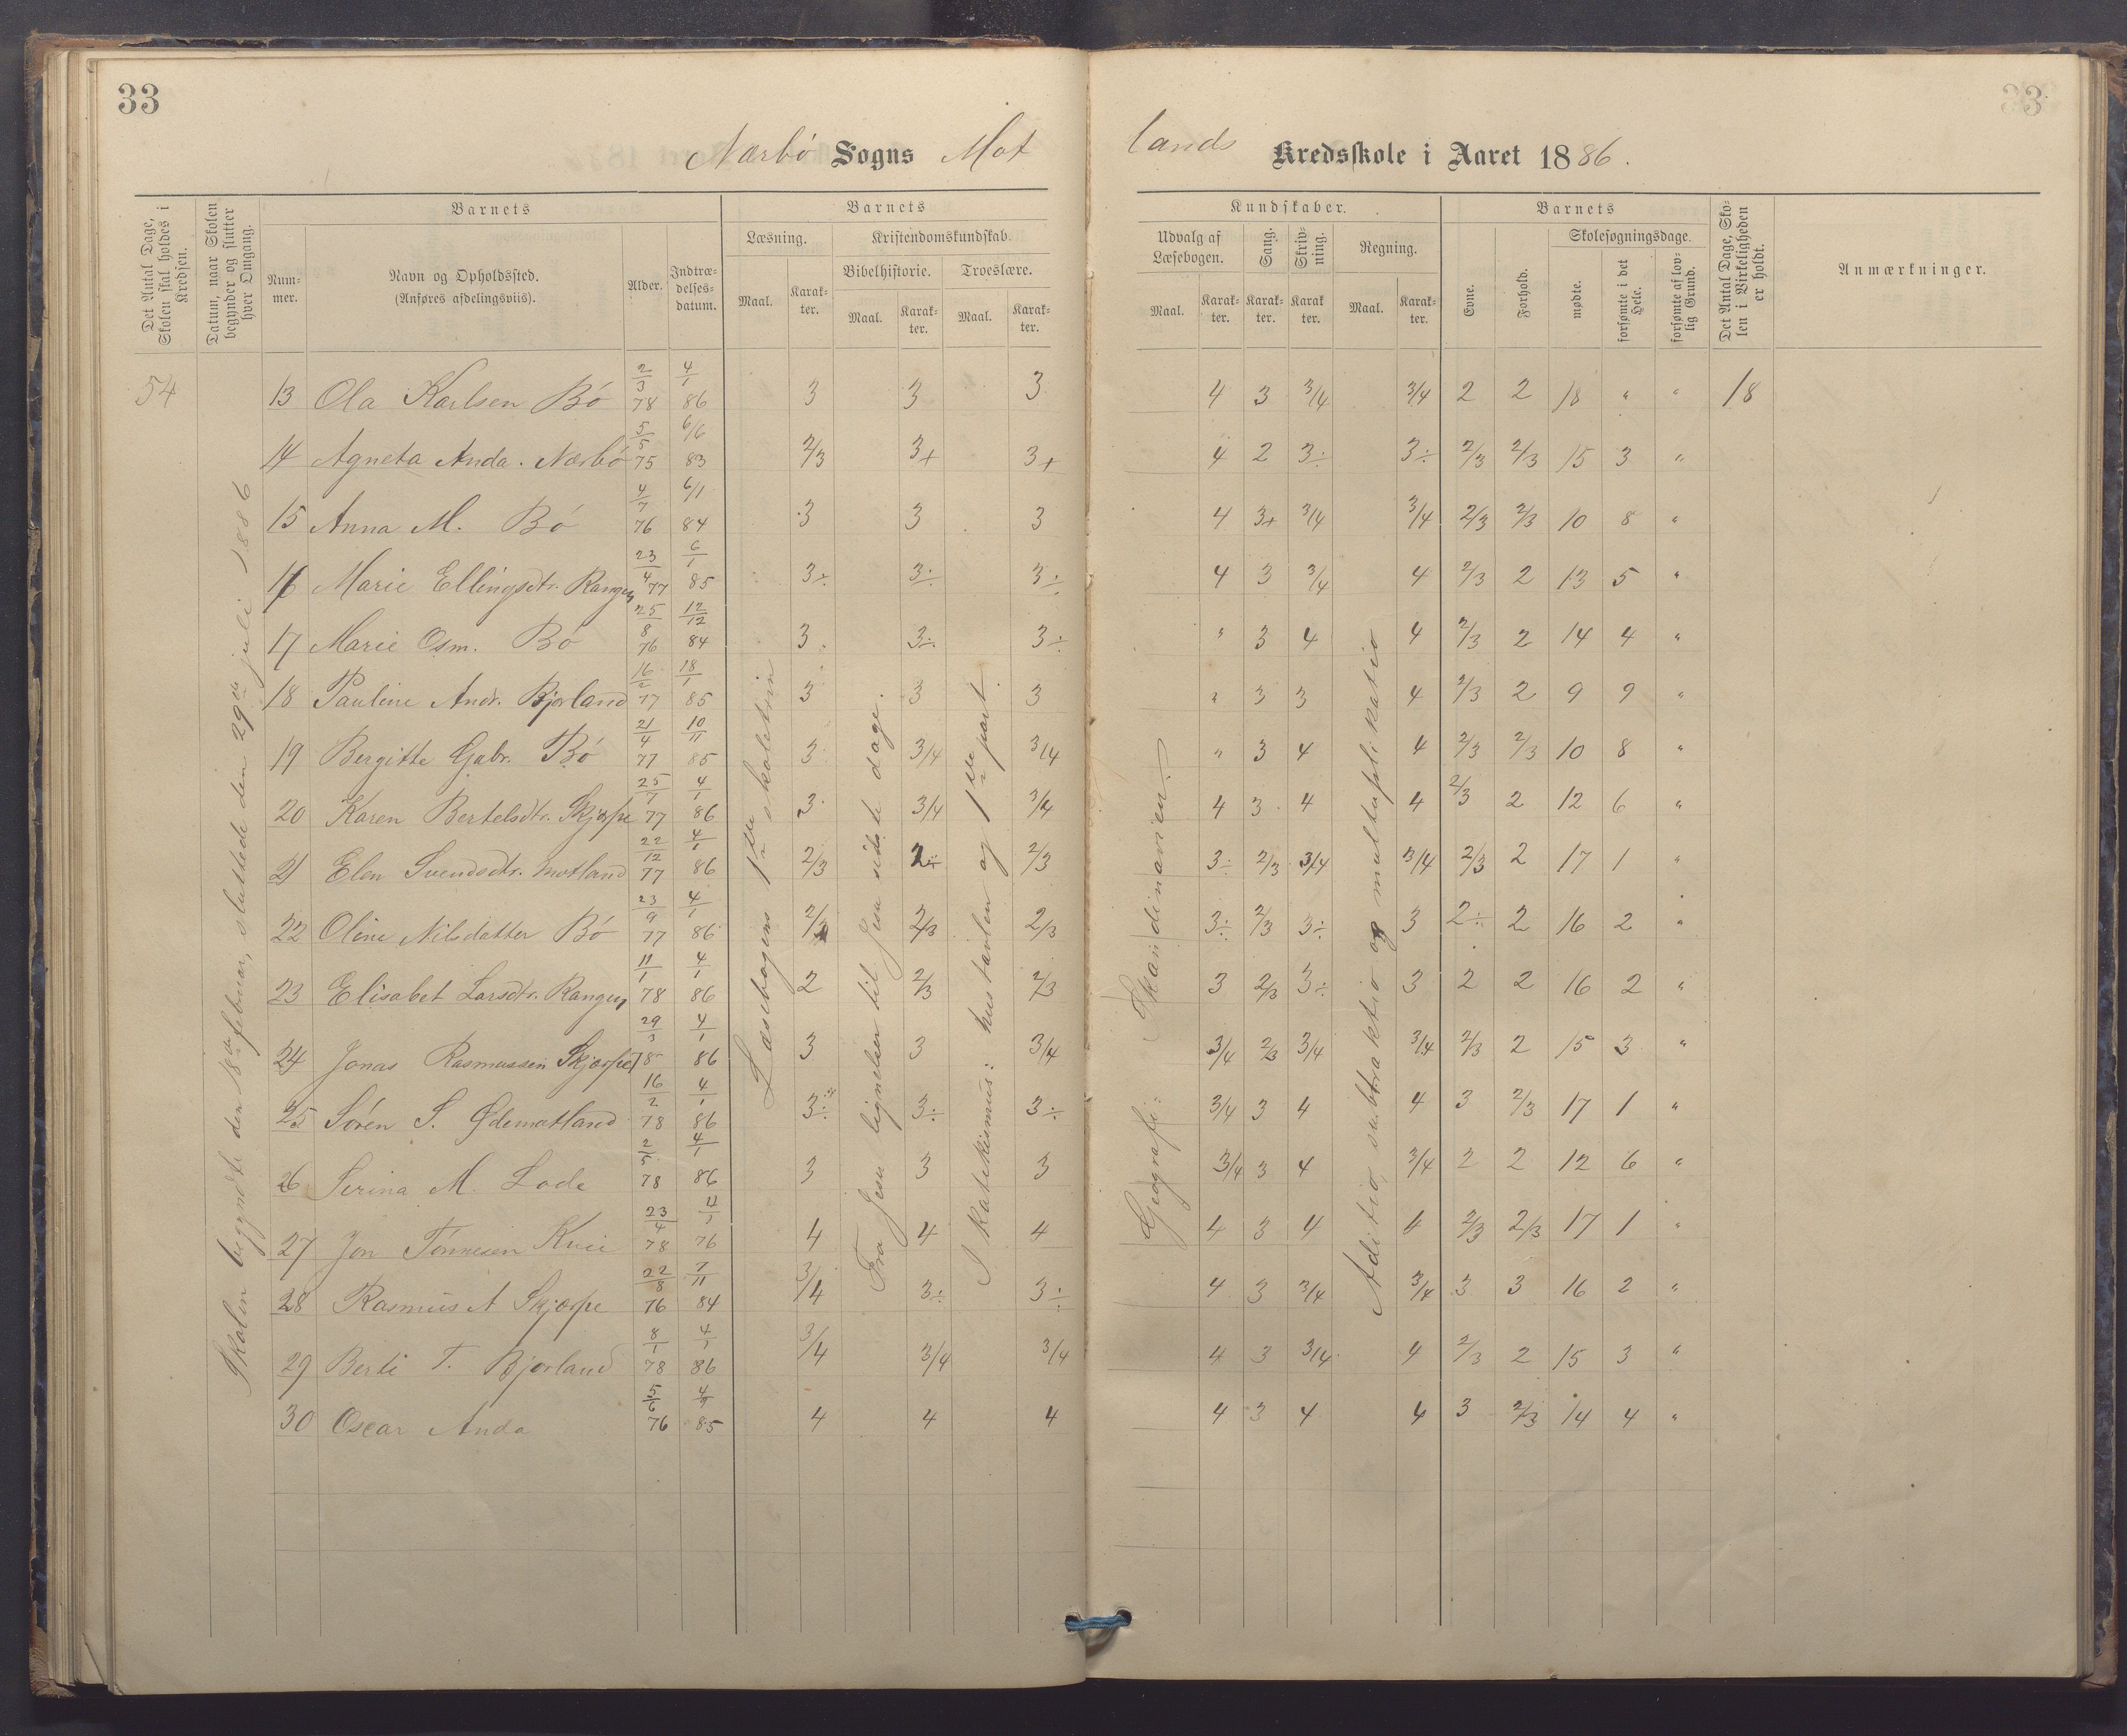 33
33
Nærbø Sogns Mot
lands Kredsskole i Aaret 1886.
Det Antal Dage, Skolen skal holdes i Kredsen.
Datum, naar Skolen begynder og slutter hver Omgang.
Barnets
Barnets
Kundskaber.
Barnets
Num-
mer.
Navn og Opholdssted.
(Anføres afdelingsviis).
Alder.
Indtræ-
delses-
datum.
Læsning.
Kristendomskundskab.
Bibelhistorie.
Troeslære.
Maal.
Karak-
ter.
Maal.
Karak-
ter.
Maal.
Karak-
ter.
Udvalg af
Læsebogen.
Sang.
Skriv-
ning.
Regning.
Maal.
Karak-
ter.
Karak-
ter.
Karak
ter.
Maal.
Karak-
ter.
Evne.
Forhold.
Skolesøgningsdage.
mødte.
forsømte i det Hele.
forsømte af lov-
lig Grund.
Det Antal Dage, Sko-
len i Virkeligheden
er holdt.
Anmærkninger.
Skolen begyndte den 18de februar, sluttede den 29de juli 1886
Læsebogens 1ste skoletrin
Fra Jesu lignelser til Jesu sidste dage.
I Katekismus: hustavlen og 1ste part.
Geografi: Skandinavien.
Aditio, subtraktio og multiplikatio
54 13 Ola Karlsen Bø 2/3 78 4/1 86 3 3 3 4 3 3/4 3/4 2 2 18 " " 18
14 Agneta Anda. Nærbø 5/5 75 6/6 83 2/3 3+ 3+ 4 2 3÷ 3÷ 2/3 2/3 15 3 "
15 Anna M. Bø 4/7 76 6/1 84 3 3 3 4 3+ 3/4 3/4 2/3 2/3 10 8 "
16 Marie Ellingsdtr. Rangen 23/4 77 6/1 85 3÷ 3÷ 3÷ 4 3 3/4 4 2/3 2 13 5 "
17 Marie Osm. Bø 25/8 76 12/12 84 3 3÷ 3÷ " 3 4 4 2/3 2 14 4 "
18 Pauline Andr. Bjorland 16/2 77 18/1 85 3 3 3 " 3 3 4 2/3 2 9 9 "
19 Bergitte Gabr. Bø 21/4 77 10/11 85 3 3/4 3/4 " 3 4 4 2/3 2/3 10 8 "
20 Karen Bertelsdtr. Skjærpe 25/7 77 4/1 86 3 3/4 3/4 4 3 4 4 2/3 2 12 6 "
21 Elen Svendsdtr. Motland 22/12 77 4/1 86 2/3 2÷ 2/3 3÷ 2/3 3/4 3/4 2/3 2 17 1 "
22 Oline Nilsdatter Bø 23/9 77 4/1 86 2/3 2/3 2/3 3÷ 2/3 3÷ 3 2÷ 2 16 2 "
23 Elisabet Larsdtr. Rangen 11/1 78 4/1 86 2 2/3 2/3 3 2/3 3÷ 3 2 2 16 2 "
24 Jonas Rasmussen Skjærpe 29/3 78 4/1 86 3 3 3/4 3/4 2/3 3/4 3/4 2/3 2 15 3 "
25 Søren S. Ødemotland 16/2 78 4/1 86 3÷ 3÷ 3÷ 3/4 3 4 4 3 2/3 17 1 "
26 Serina M. Lode 2/5 78 4/1 86 3 3 3 3/4 3 4 3/4 2 2 12 6 "
27 Jon Tønnesen Kvii 23/4 78 4/1 76 4 4 4 4 3 4 4 2/3 2/3 17 1 "
28 Rasmus A Skjærpe 22/8 76 7/11 84 3/4 3÷ 3÷ 4 3 3/4 3/4 3 3 16 2 "
29 Berte T. Bjorland 8/1 78 4/1 86 3/4 3/4 3/4 4 3 3/4 4 2/3 2 15 3 "
30 Oscar Anda 5/6 76 4/9 85 4 4 4 4 3 4 4 3 2/3 14 4 "